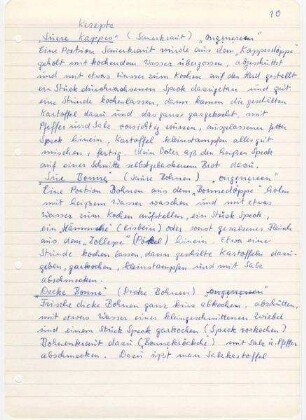 10
Rezepte
"Suere Kappes" (Sauerkraut) "ongeneeren"
Eine Portion Sauerkraut wurde aus dem "Kappesdöppe"
geholt mit kochendem Wasser übergossen, abgeschüttet
und mit etwas Wasser zum Kochen auf den Herd gestellt
ein Stück durchwachsenen Speck dazugetan und gut
eine Stunde kochenlassen, dann kamen die geschälten
Kartoffel dazu und das ganze gargekocht, mit
Pfeffer und Salz vorsichtig würzen, ausgelassenes fettes
Speck hinein, Kartoffel kleinstampfen alles gut
mischen, fertig. Mein Vater aß den heißen Speck
auf einer Schnitte selbstgebackenem Brot dazu.
"Sure Bonne" (Saure Bohnen) "ongeneeren"
Eine Portion Bohnen aus dem "Bonnedöppe" holen
mit heißem Wasser waschen und mit etwas
Wasser zum kochen aufstellen, ein Stück Speck,
ein Hämmche (Eisbein) oder sonst gesalzenes Fleisch
aus dem "Zolleper" (Pökel) hinein. Etwa eine
Stunde kochen lassen, dann geschälte Kartoffeln dazu-
geben, garkochen, kleinstampfen und mit Salz
abschmecken.
"Decke Bonne" (Dicke Bohnen)
Frische dicke Bohnen ganz kurz abkochen, abschütten
mit etwas Wasser einer kleingeschnittenen Zwiebel
und einem Stück Speck garkochen (Speck vorkochen)
Bohnenkraut dazu (Bonnekräcksche) mit Salz u. Pfeffer
abschmecken. Dazu ißt man Salzkartoffel